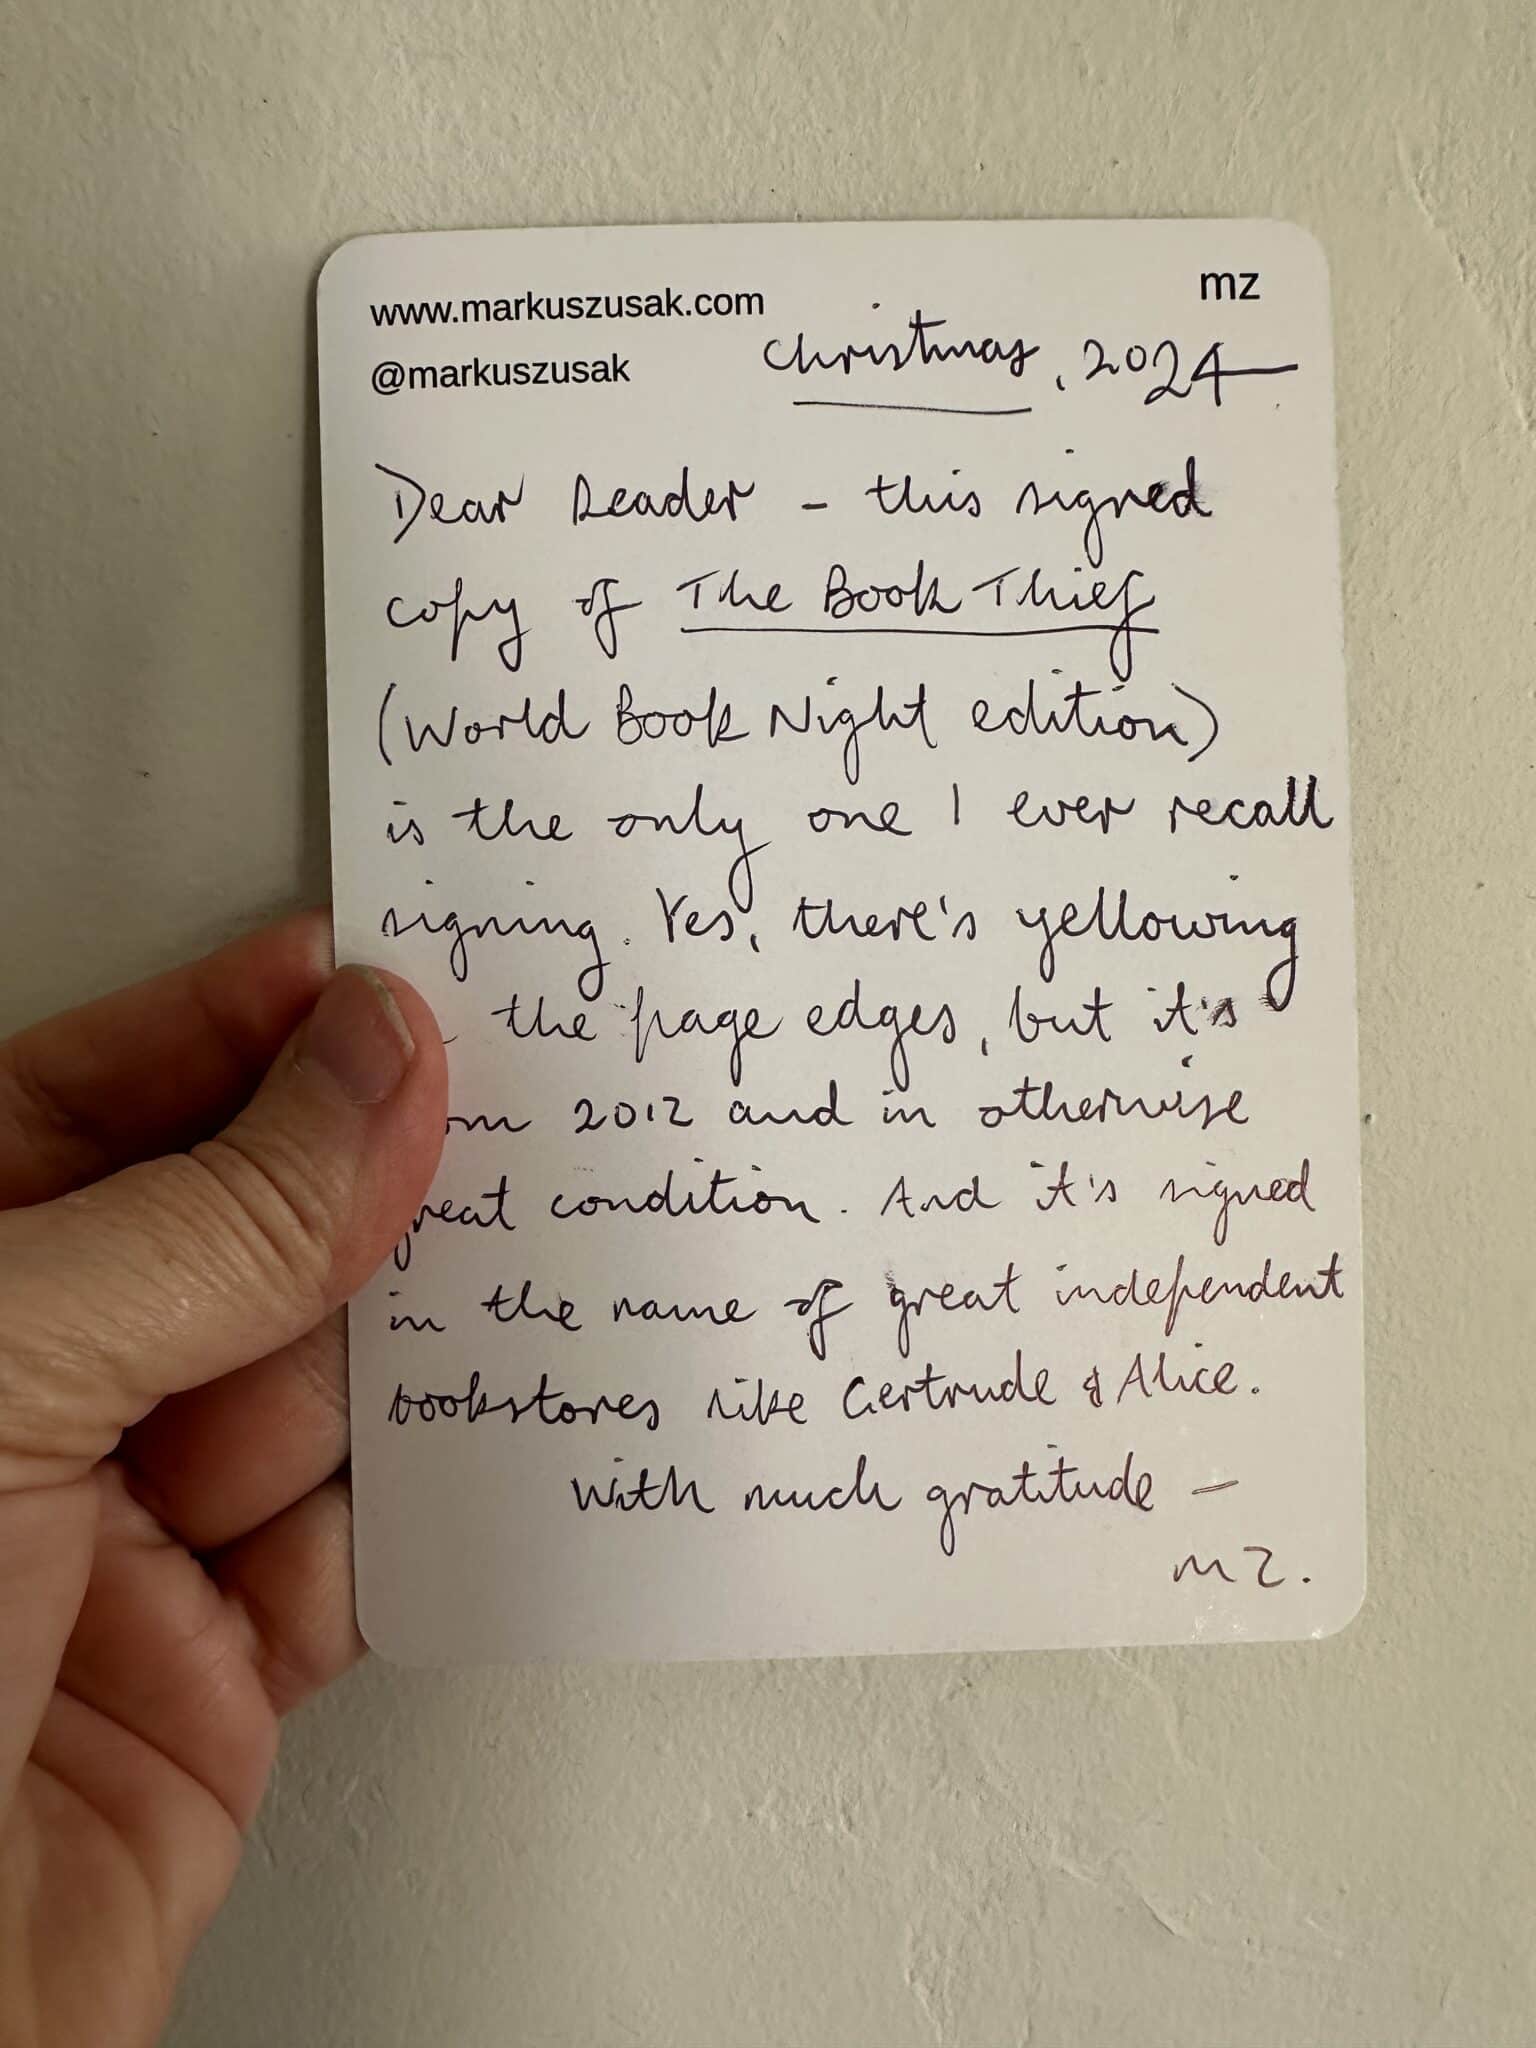 www.markuszusak.com
mz
@markuszusak
Christmas, 2024
Dear Reader - this signed
copy of The Book Thief
(World Book Night edition)
is the only one I ever recall
signing. Yes, there's yellowing
the page edges, but it's
2012 and in otherwise
great condition. And it's signed
in the name of great independent
bookstores like Gertrude & Alice.
With much gratitude -
MZ.